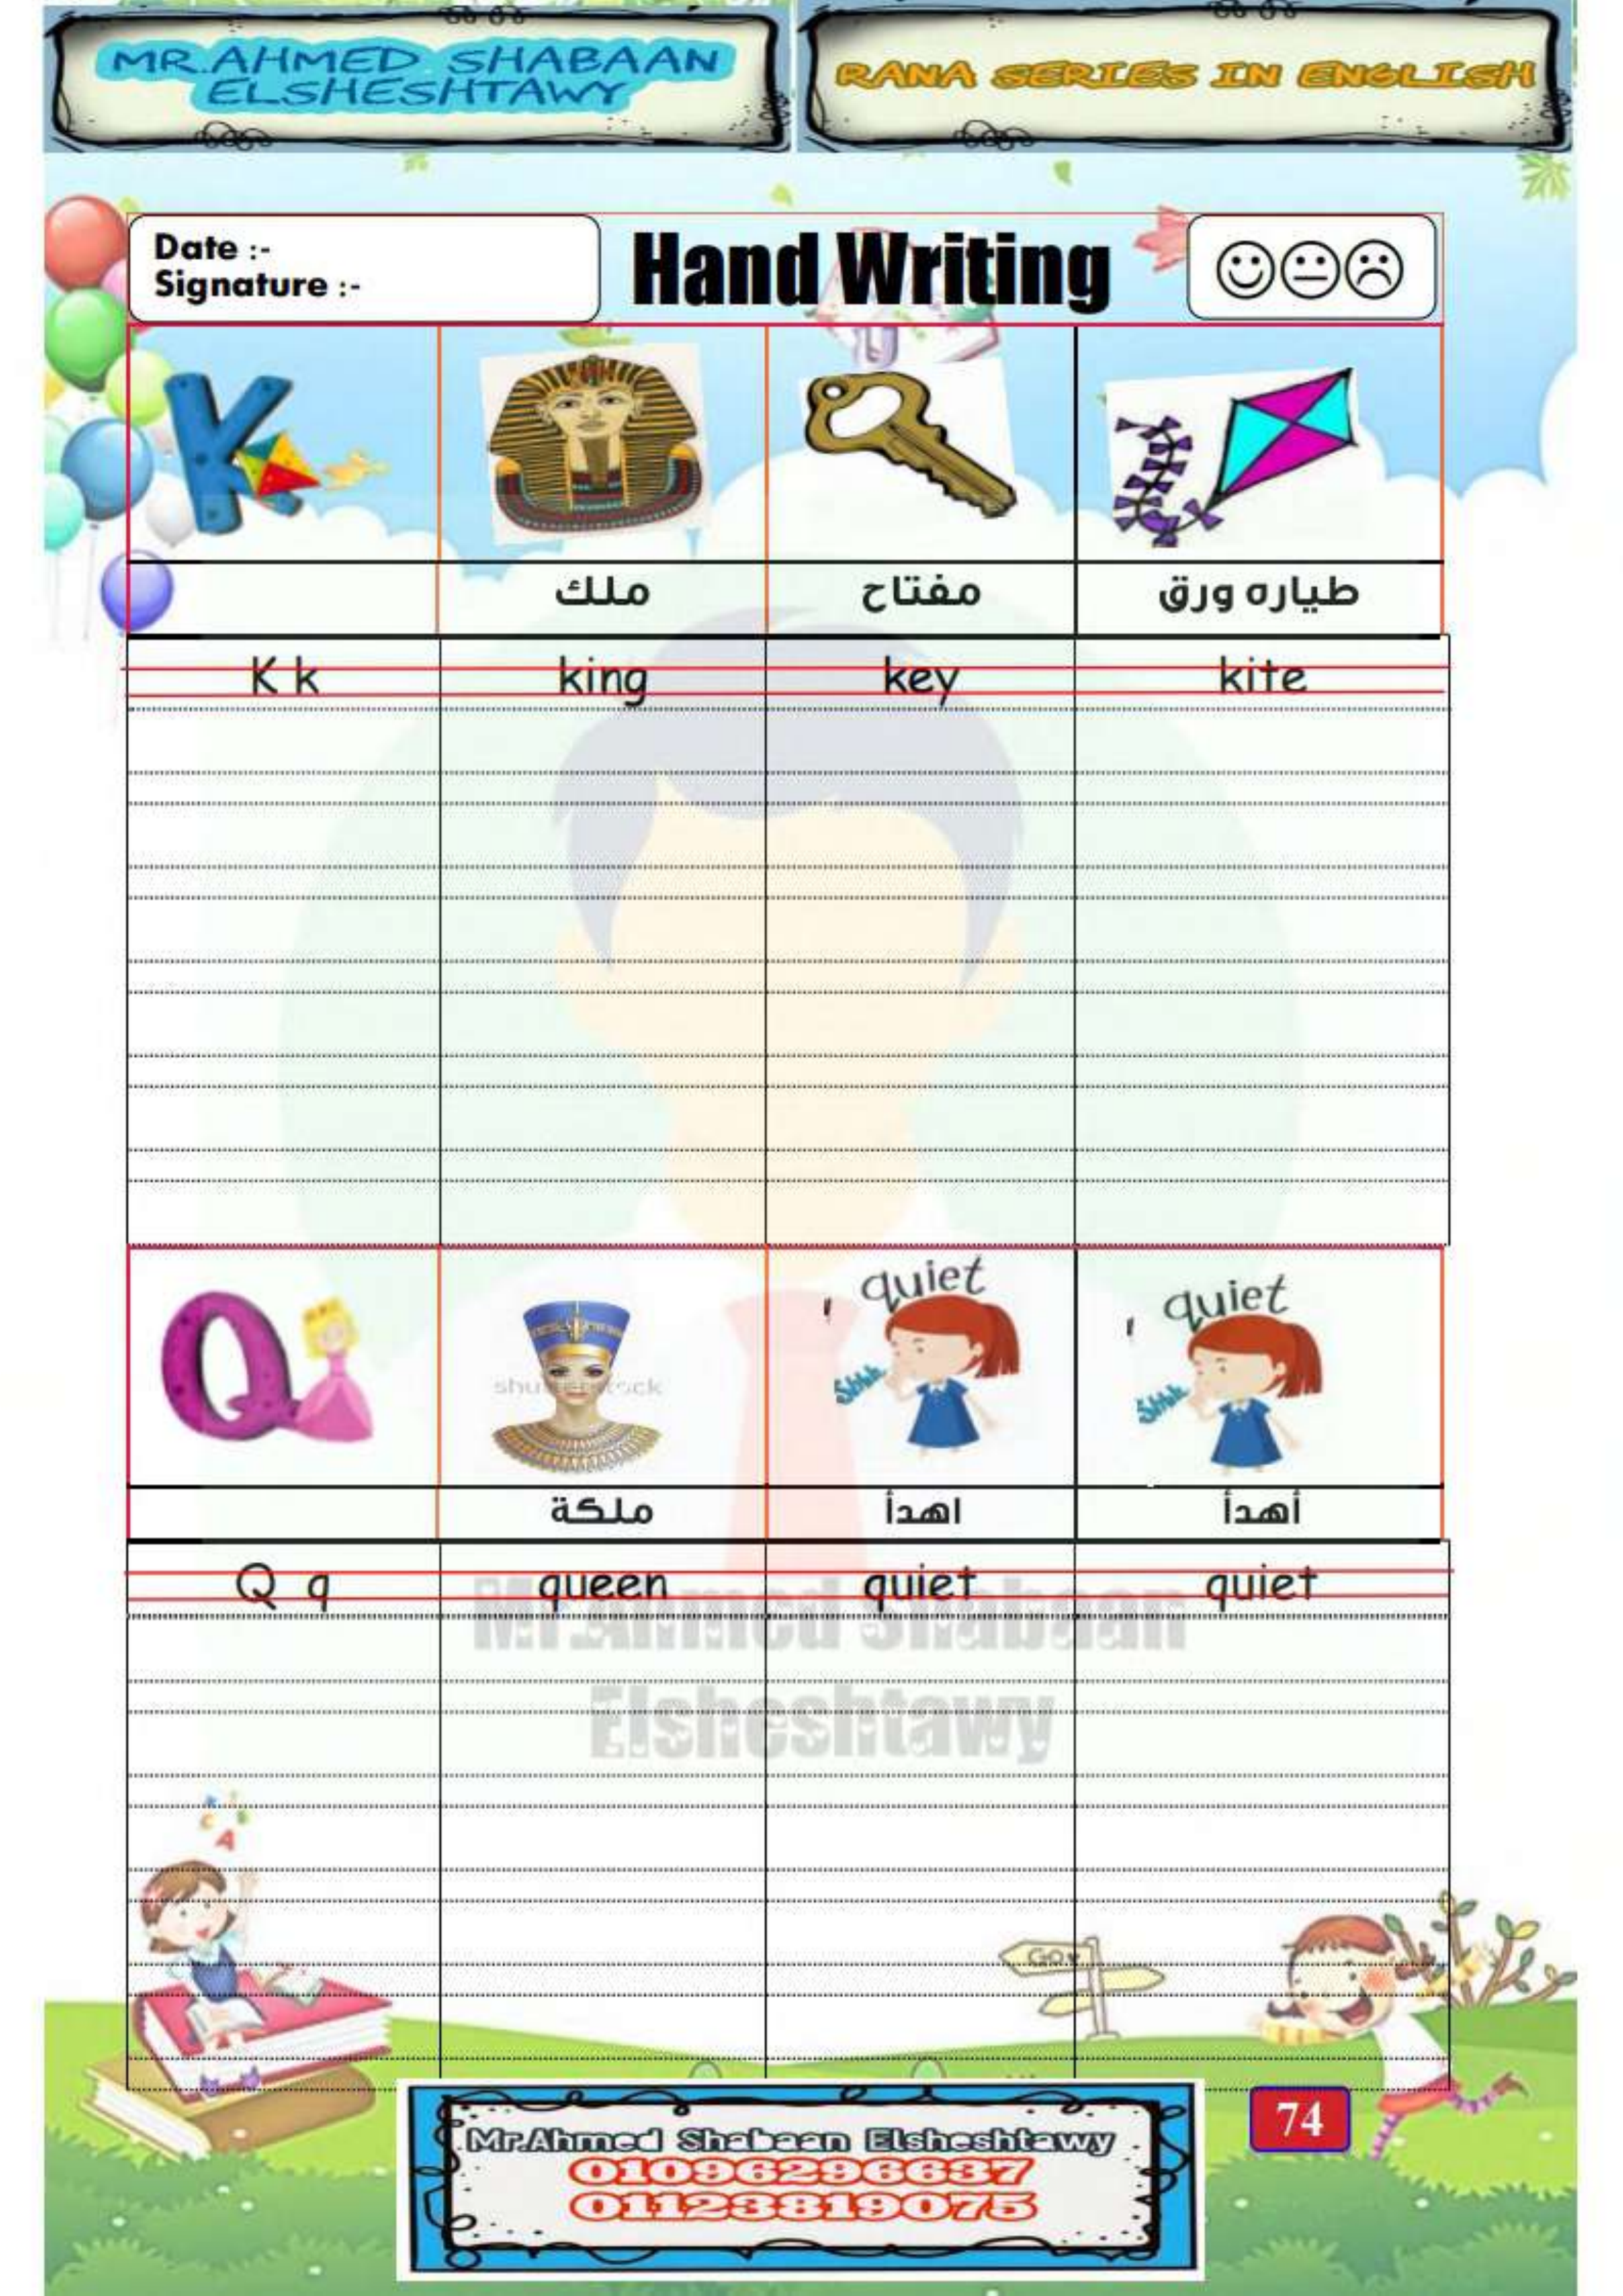 MR.AHMED SHABAAN
ELSHESHTAWY
RANA SERIES IN ENGLISH
Date :-
Signature :-
Hand Writing
K
ملك
مفتاح
طياره ورق
K k
king
key
kite
Q
shutterstock
quiet
Shhh
quiet
Shhh
ملكة
اهدأ
أهدأ
Q q
queen
quiet
quiet
Mr.Ahmed Shabaan
Elsheshtawy
A
GO
Mr.Ahmed Shabaan Elsheshtawy
01096296637
01123819075
74